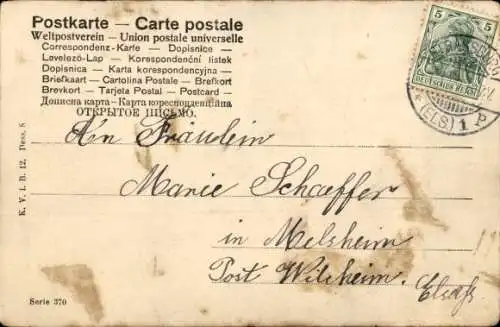 Postkarte – Carte postale
Weltpostverein – Union postale universelle
Correspondenz-Karte – Dopisnice –
Levelező-Lap – Korespondenční lístek
Dopisnica – Karta korespondencyjna –
Briefkaart – Cartolina Postale – Brefkort
Brevkort – Tarjeta Postal – Postcard –
Дописна карта – Карта кореспонденційна
ОТКРЫТОЕ ПИСЬМО.
5 5
DEUTSCHES REICH
*(ELS) 1 b
An Fräulein
Marie Schaeffer
in Melsheim
Post Wilwisheim. Elsaß
K. V. i. B. 12. Dess. 8
Serie 370